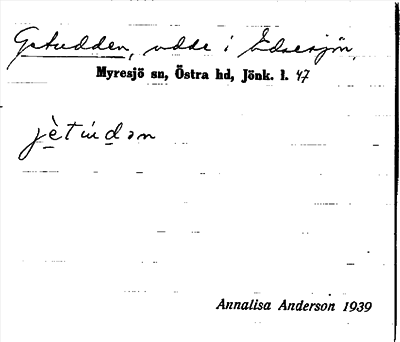 Getudden, udde i Edsesjön,
Myresjö sn, Östra hd, Jönk. l. 47
jètúdən
Annalisa Anderson 1939